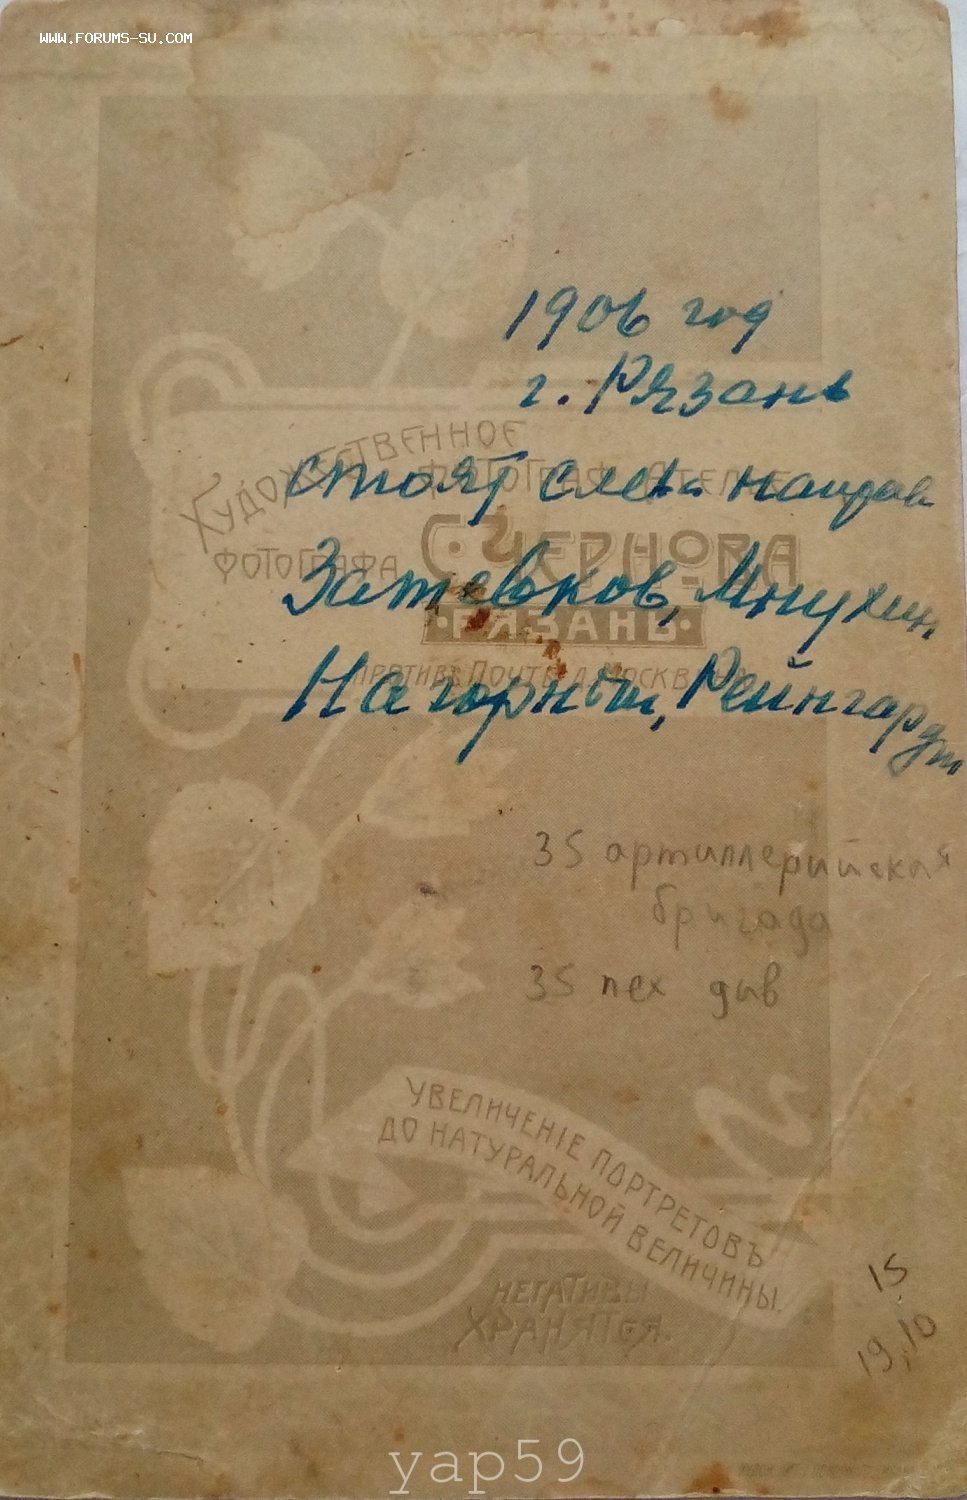 WWW.FORUMS-SU.COM
1906 год
г. Рязань
ХУДОЖЕСТВЕННОЕ
ФОТОГРАФ. АТЕЛЬЕ
стоят слева направ
ФОТОГРАФА
С. ЧЕРНОВА
Затевков, Мнухин,
РЯЗАНЬ
ПРОТИВЪ ПОЧТЫ Д. МОСКВИНА
Нагорный, Рейнгардт
35 артиллерийская
бригада
35 пех див
УВЕЛИЧЕНІЕ ПОРТРЕТОВЪ
ДО НАТУРАЛЬНОЙ ВЕЛИЧИНЫ.
НЕГАТИВЫ
ХРАНЯТСЯ.
15
19,10
yap59